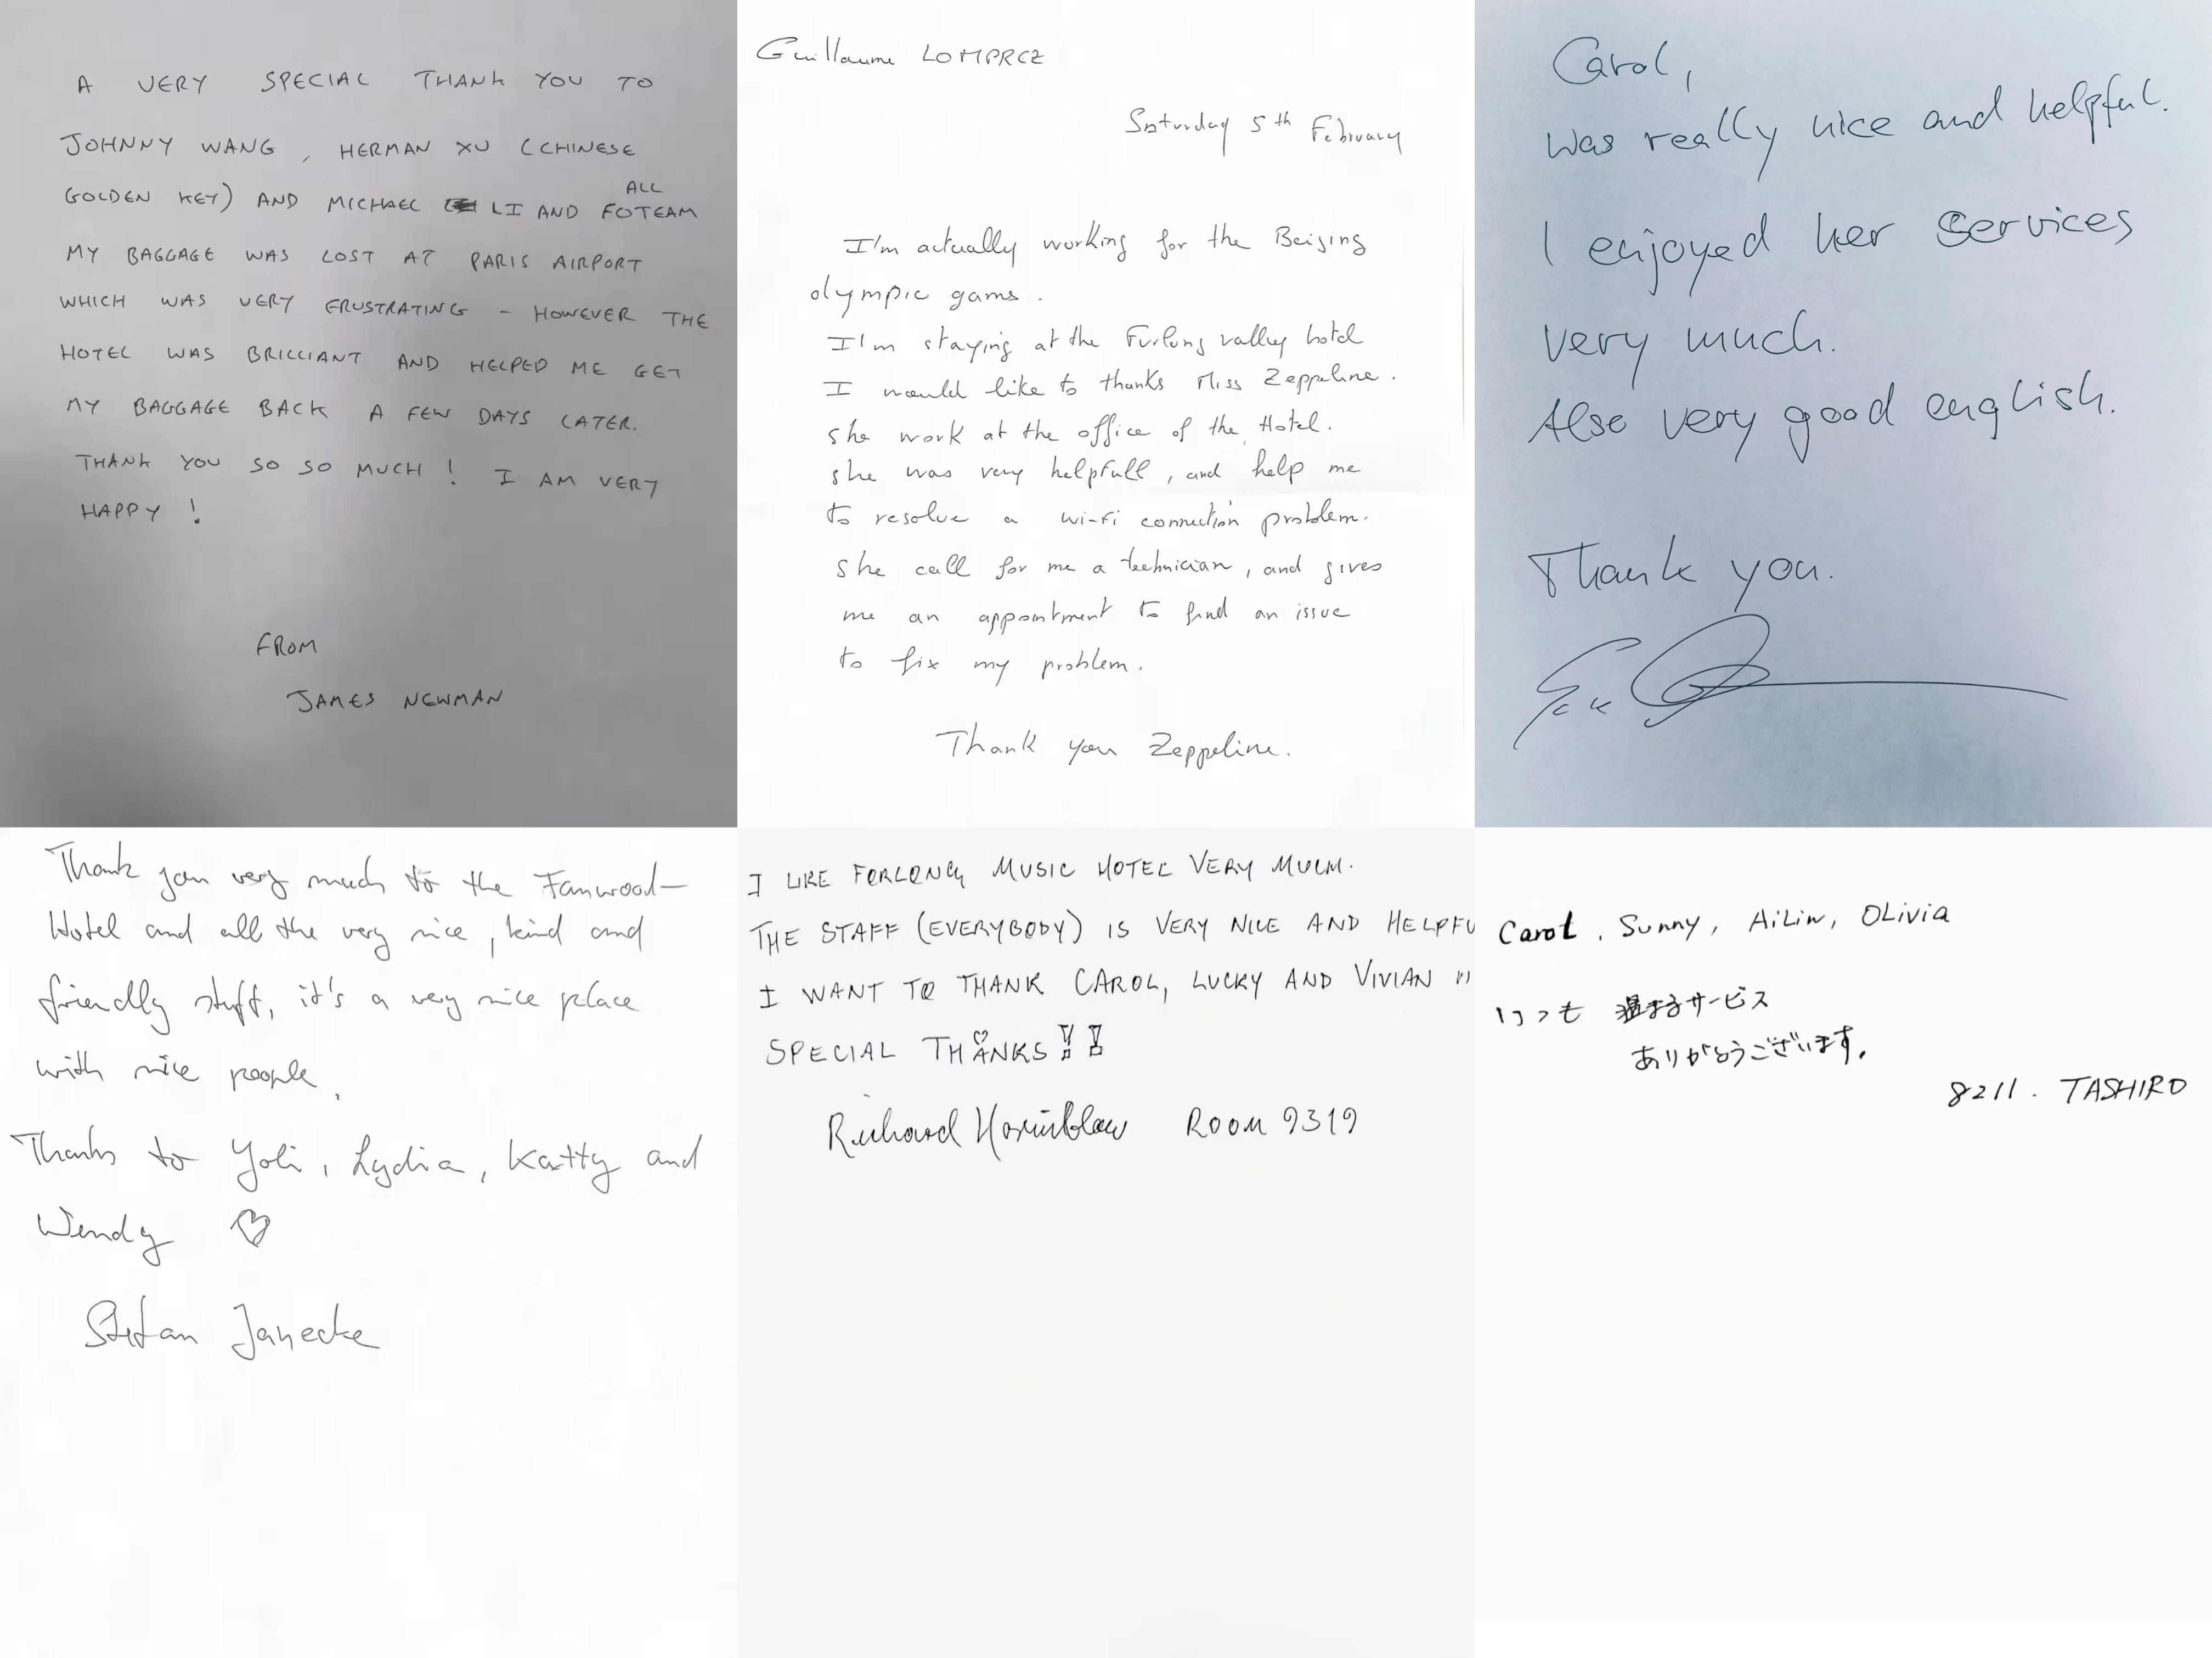 A VERY SPECIAL THANK YOU TO
JOHNNY WANG, HERMAN XU (CHINESE
GOLDEN KEY) AND MICHAEL LI AND ALL FOTEAM
MY BAGGAGE WAS LOST AT PARIS AIRPORT
WHICH WAS VERY FRUSTRATING - HOWEVER THE
HOTEL WAS BRILLIANT AND HELPED ME GET
MY BAGGAGE BACK A FEW DAYS LATER.
THANK YOU SO SO MUCH! I AM VERY
HAPPY!
FROM
JAMES NEWMAN
Guillaume
Saturday 5th February
I'm actually working for the Beijing
olympic gams.
I'm staying at the Furlong valley hotel
I would like to thanks Miss Zeppeline.
she work at the office of the Hotel.
she was very helpfull, and help me
to resolve a wi-fi connection problem.
She call for me a technician, and gives
me an appointment to find an issue
to fix my problem.
Thank you Zeppeline.
Carol,
was really nice and helpful.
I enjoyed her services
very much.
Also very good english.
Thank you.
Thank you very much to the Fanwood-
Hotel and all the very nice, kind and
friendly stuff, it's a very nice place
with nice people.
Thanks to Yoli, Lydia, Katty and
Wendy ♡
Stefan Janecke
I LIKE FORLONG MUSIC HOTEL VERY MUCH.
THE STAFF (EVERYBODY) IS VERY NICE AND HELPFU
I WANT TO THANK CAROL, LUCKY AND VIVIAN !!!
SPECIAL THANKS!!
Richard ROOM 9319
Carol, Sunny, AiLin, OLivia
いつも 温まるサービス
ありがとうございます。
8211. TASHIRO